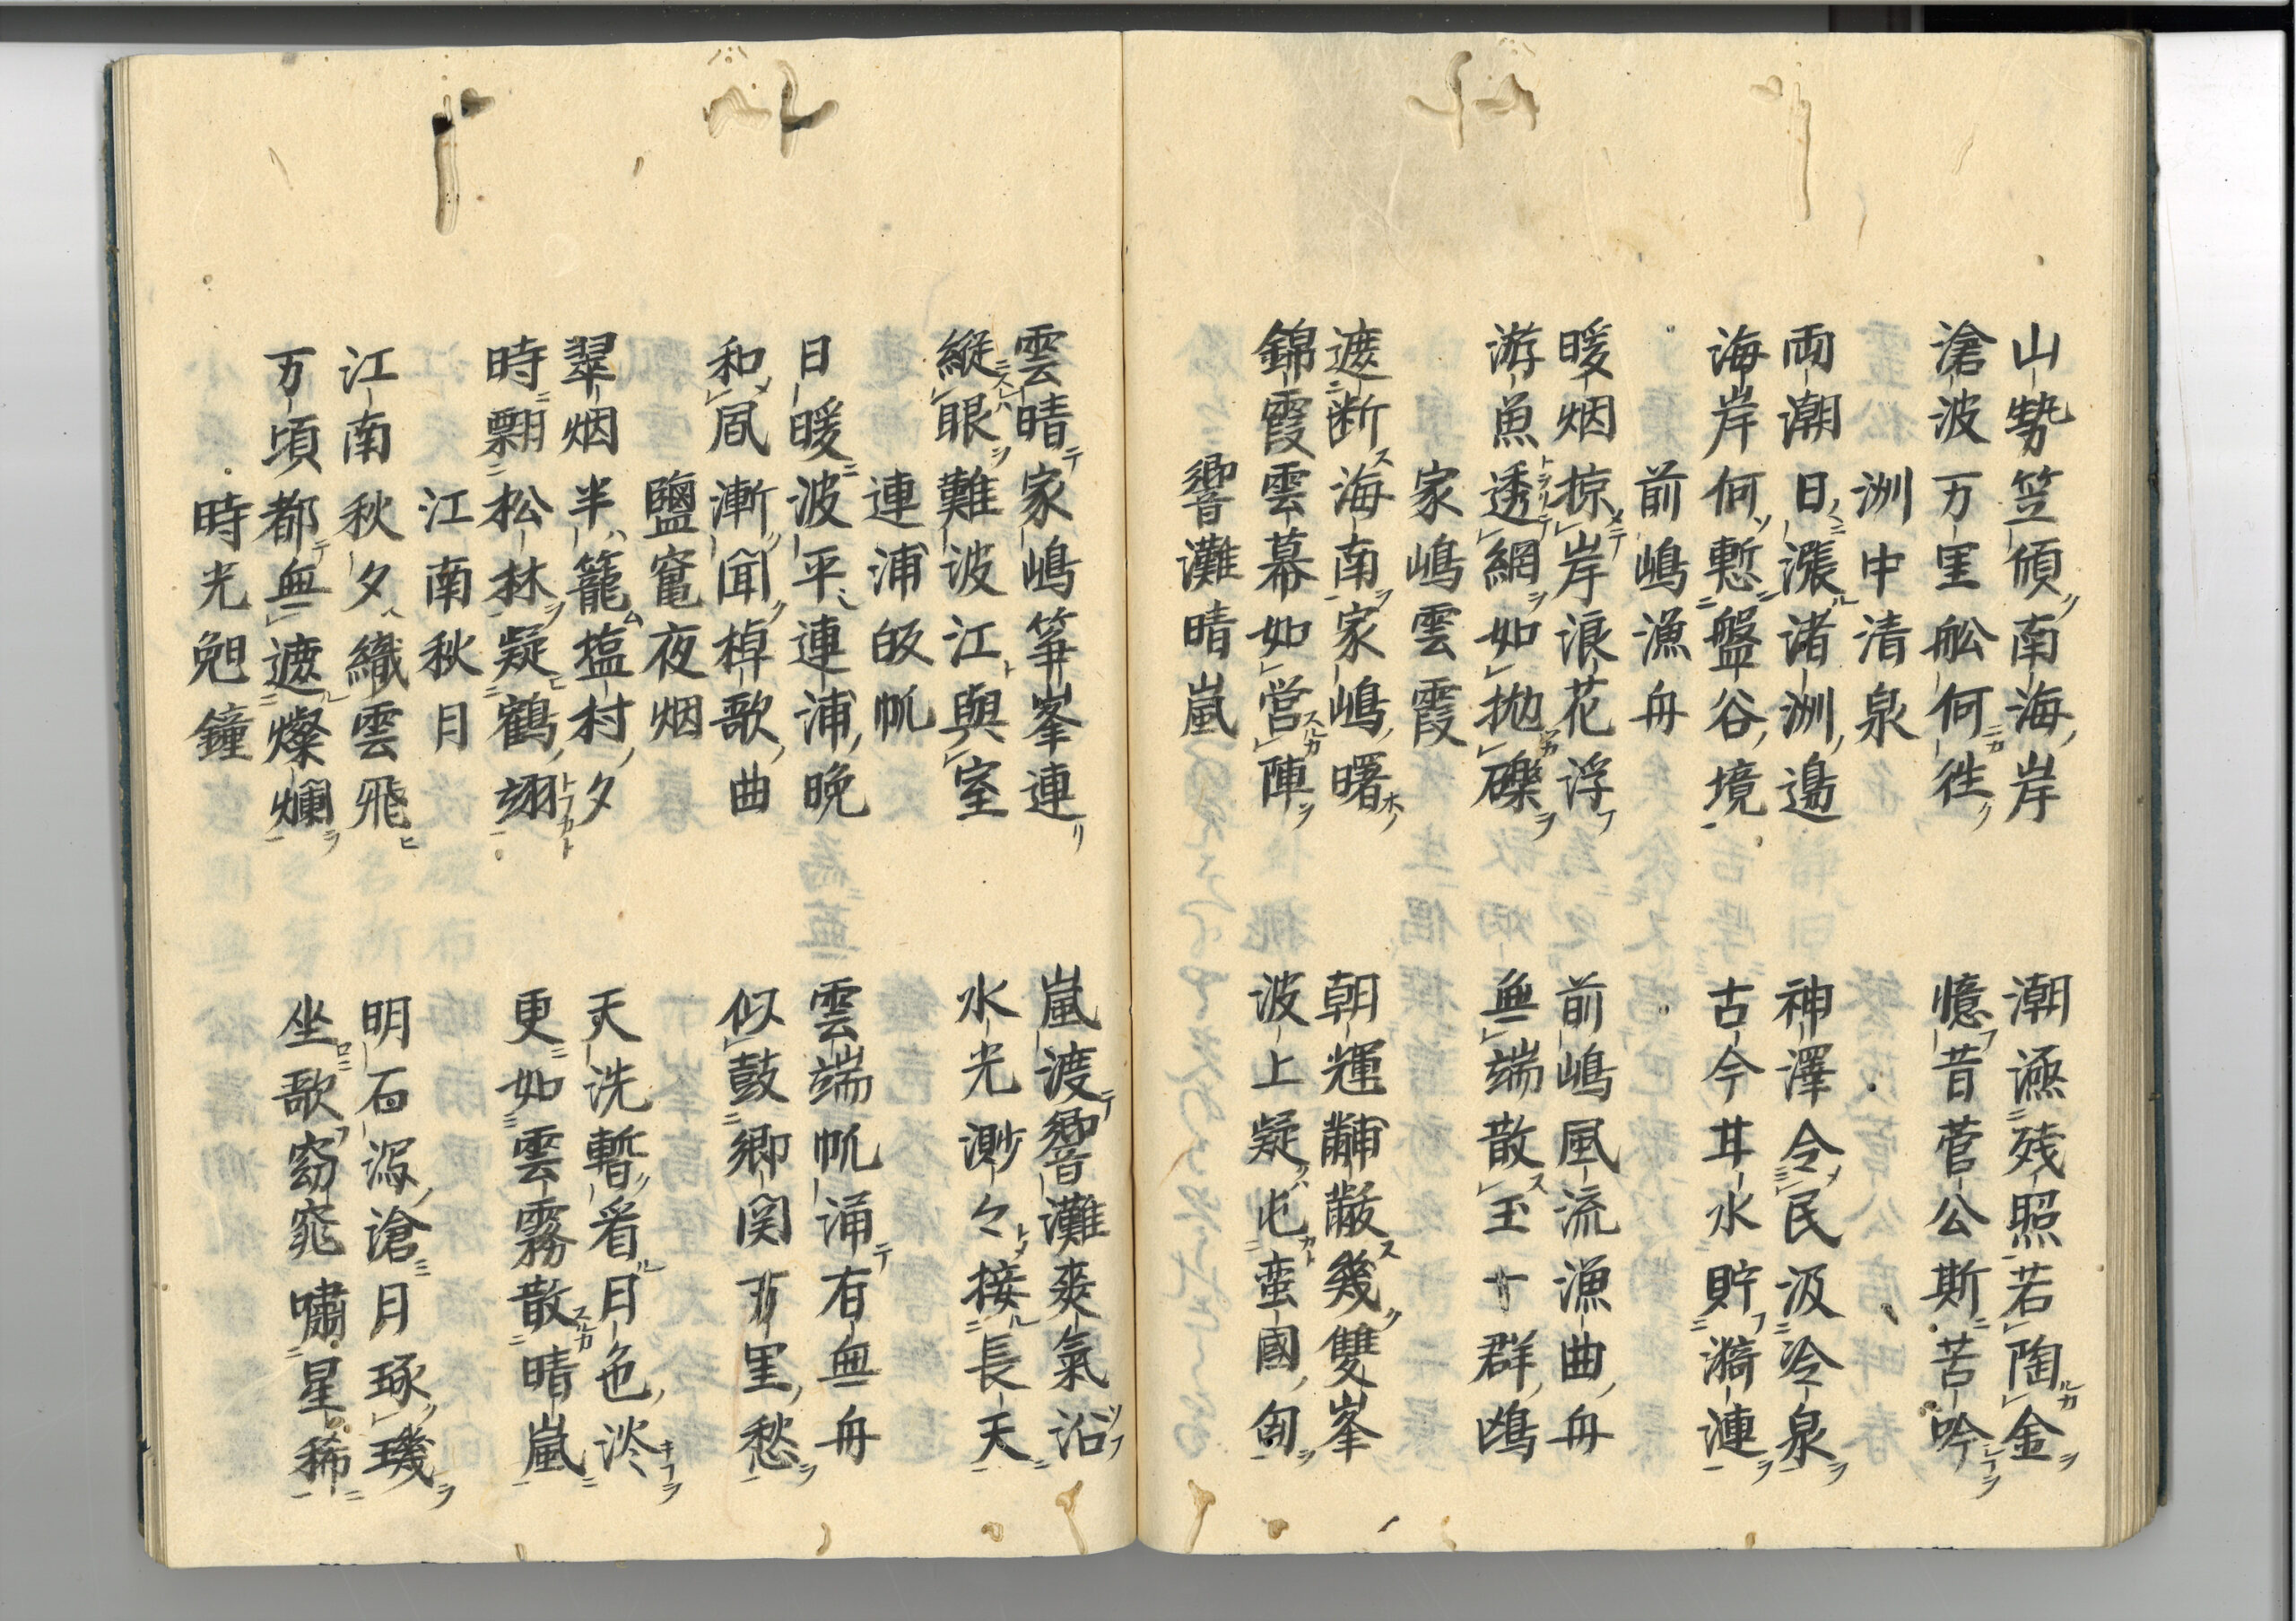 山勢笠傾南海岸　潮漚残照若陶金
滄波万里舩何徃　憶昔菅公斯苦吟
洲中清泉
両潮日漲渚洲邉　神澤令民汲冷泉
海岸何慙盤谷境　古今井水貯漪漣
前嶋漁舟
暖烟掠岸浪花浮　前嶋風流漁曲舟
游魚透網如抛礫　無端散玉一群鴎
家嶋雲霞
遮断海南家嶋曙　朝輝黼黻幾雙峯
錦霞雲幕如営陣　波上疑屯蛮國匈
響灘晴嵐
雲晴家嶋筝峯連　嵐渡響灘爽氣沿
縦眼難波江與室　水光渺々接長天
連浦皈帆
日暖波平連浦晩　雲端帆涌有無舟
和風漸聞棹歌曲　似鼓郷関万里愁
鹽竃夜烟
翠烟半籠塩村夕　天洗暫看月色淡
時飄松林疑鶴翊　更如雲霧散晴嵐
江南秋月
江南秋夕織雲飛　明石瀉滄月琢璣
万頃都無遮燦爛　坐歌窈窕嘯星稀
時光兠鐘